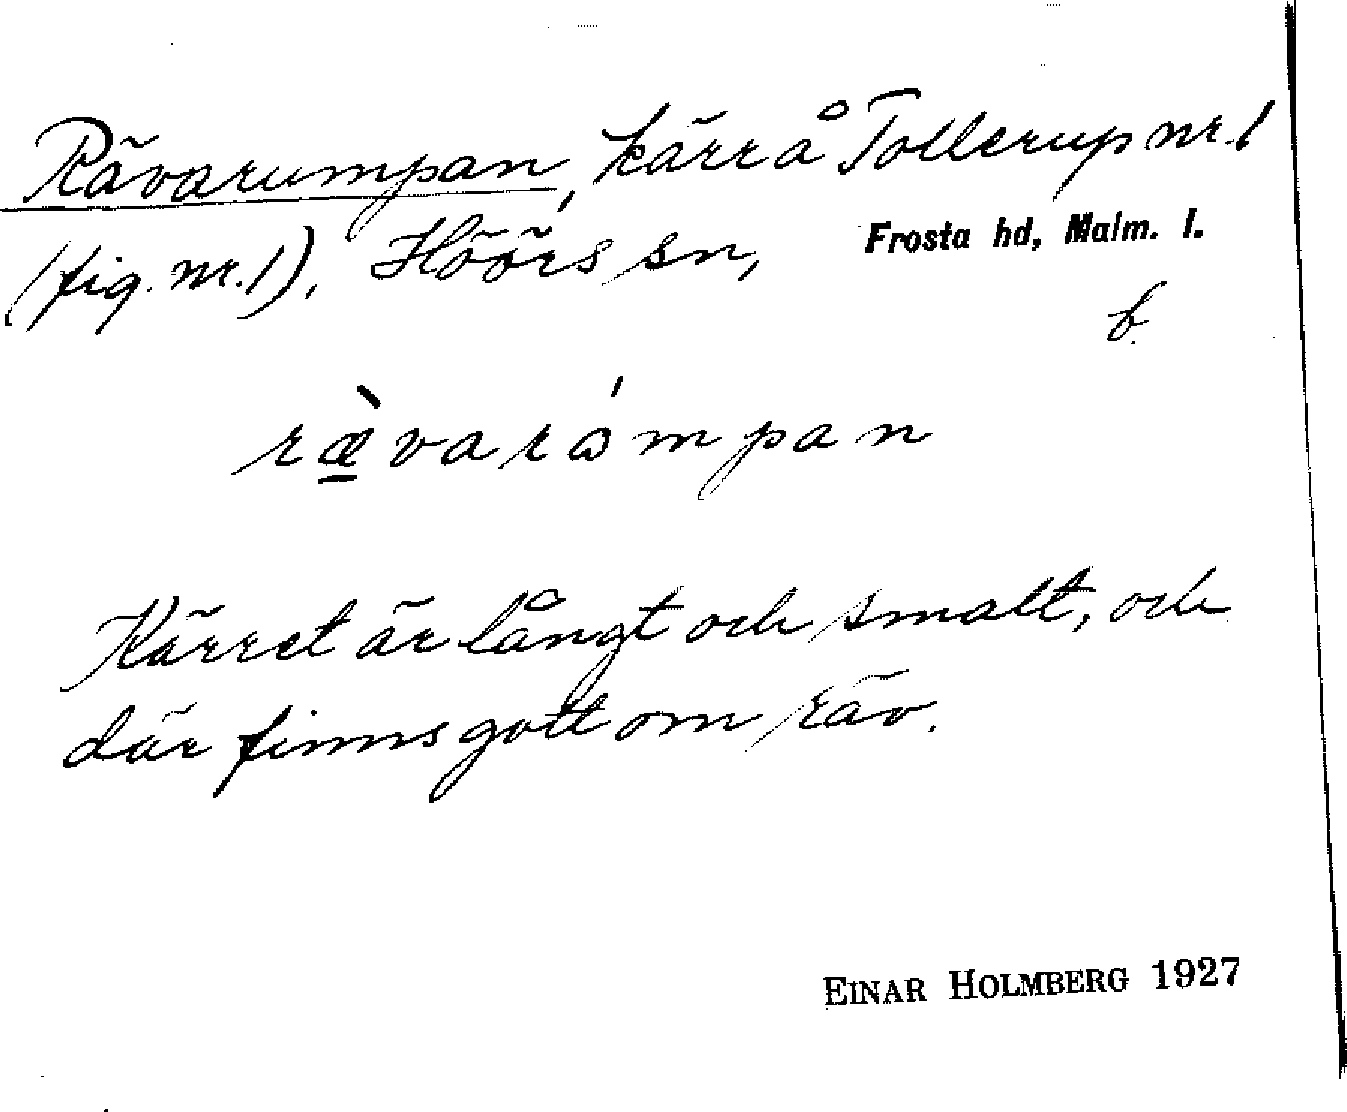 Rävarumpan, kärr å Tollerup nr. 1
(fig. nr. 1), Höörs sn, Frosta hd, Malm. l.
b.
ræ̱̀varómpan
Kärret är långt och smalt, och
där finns gott om räv.
EINAR HOLMBERG 1927